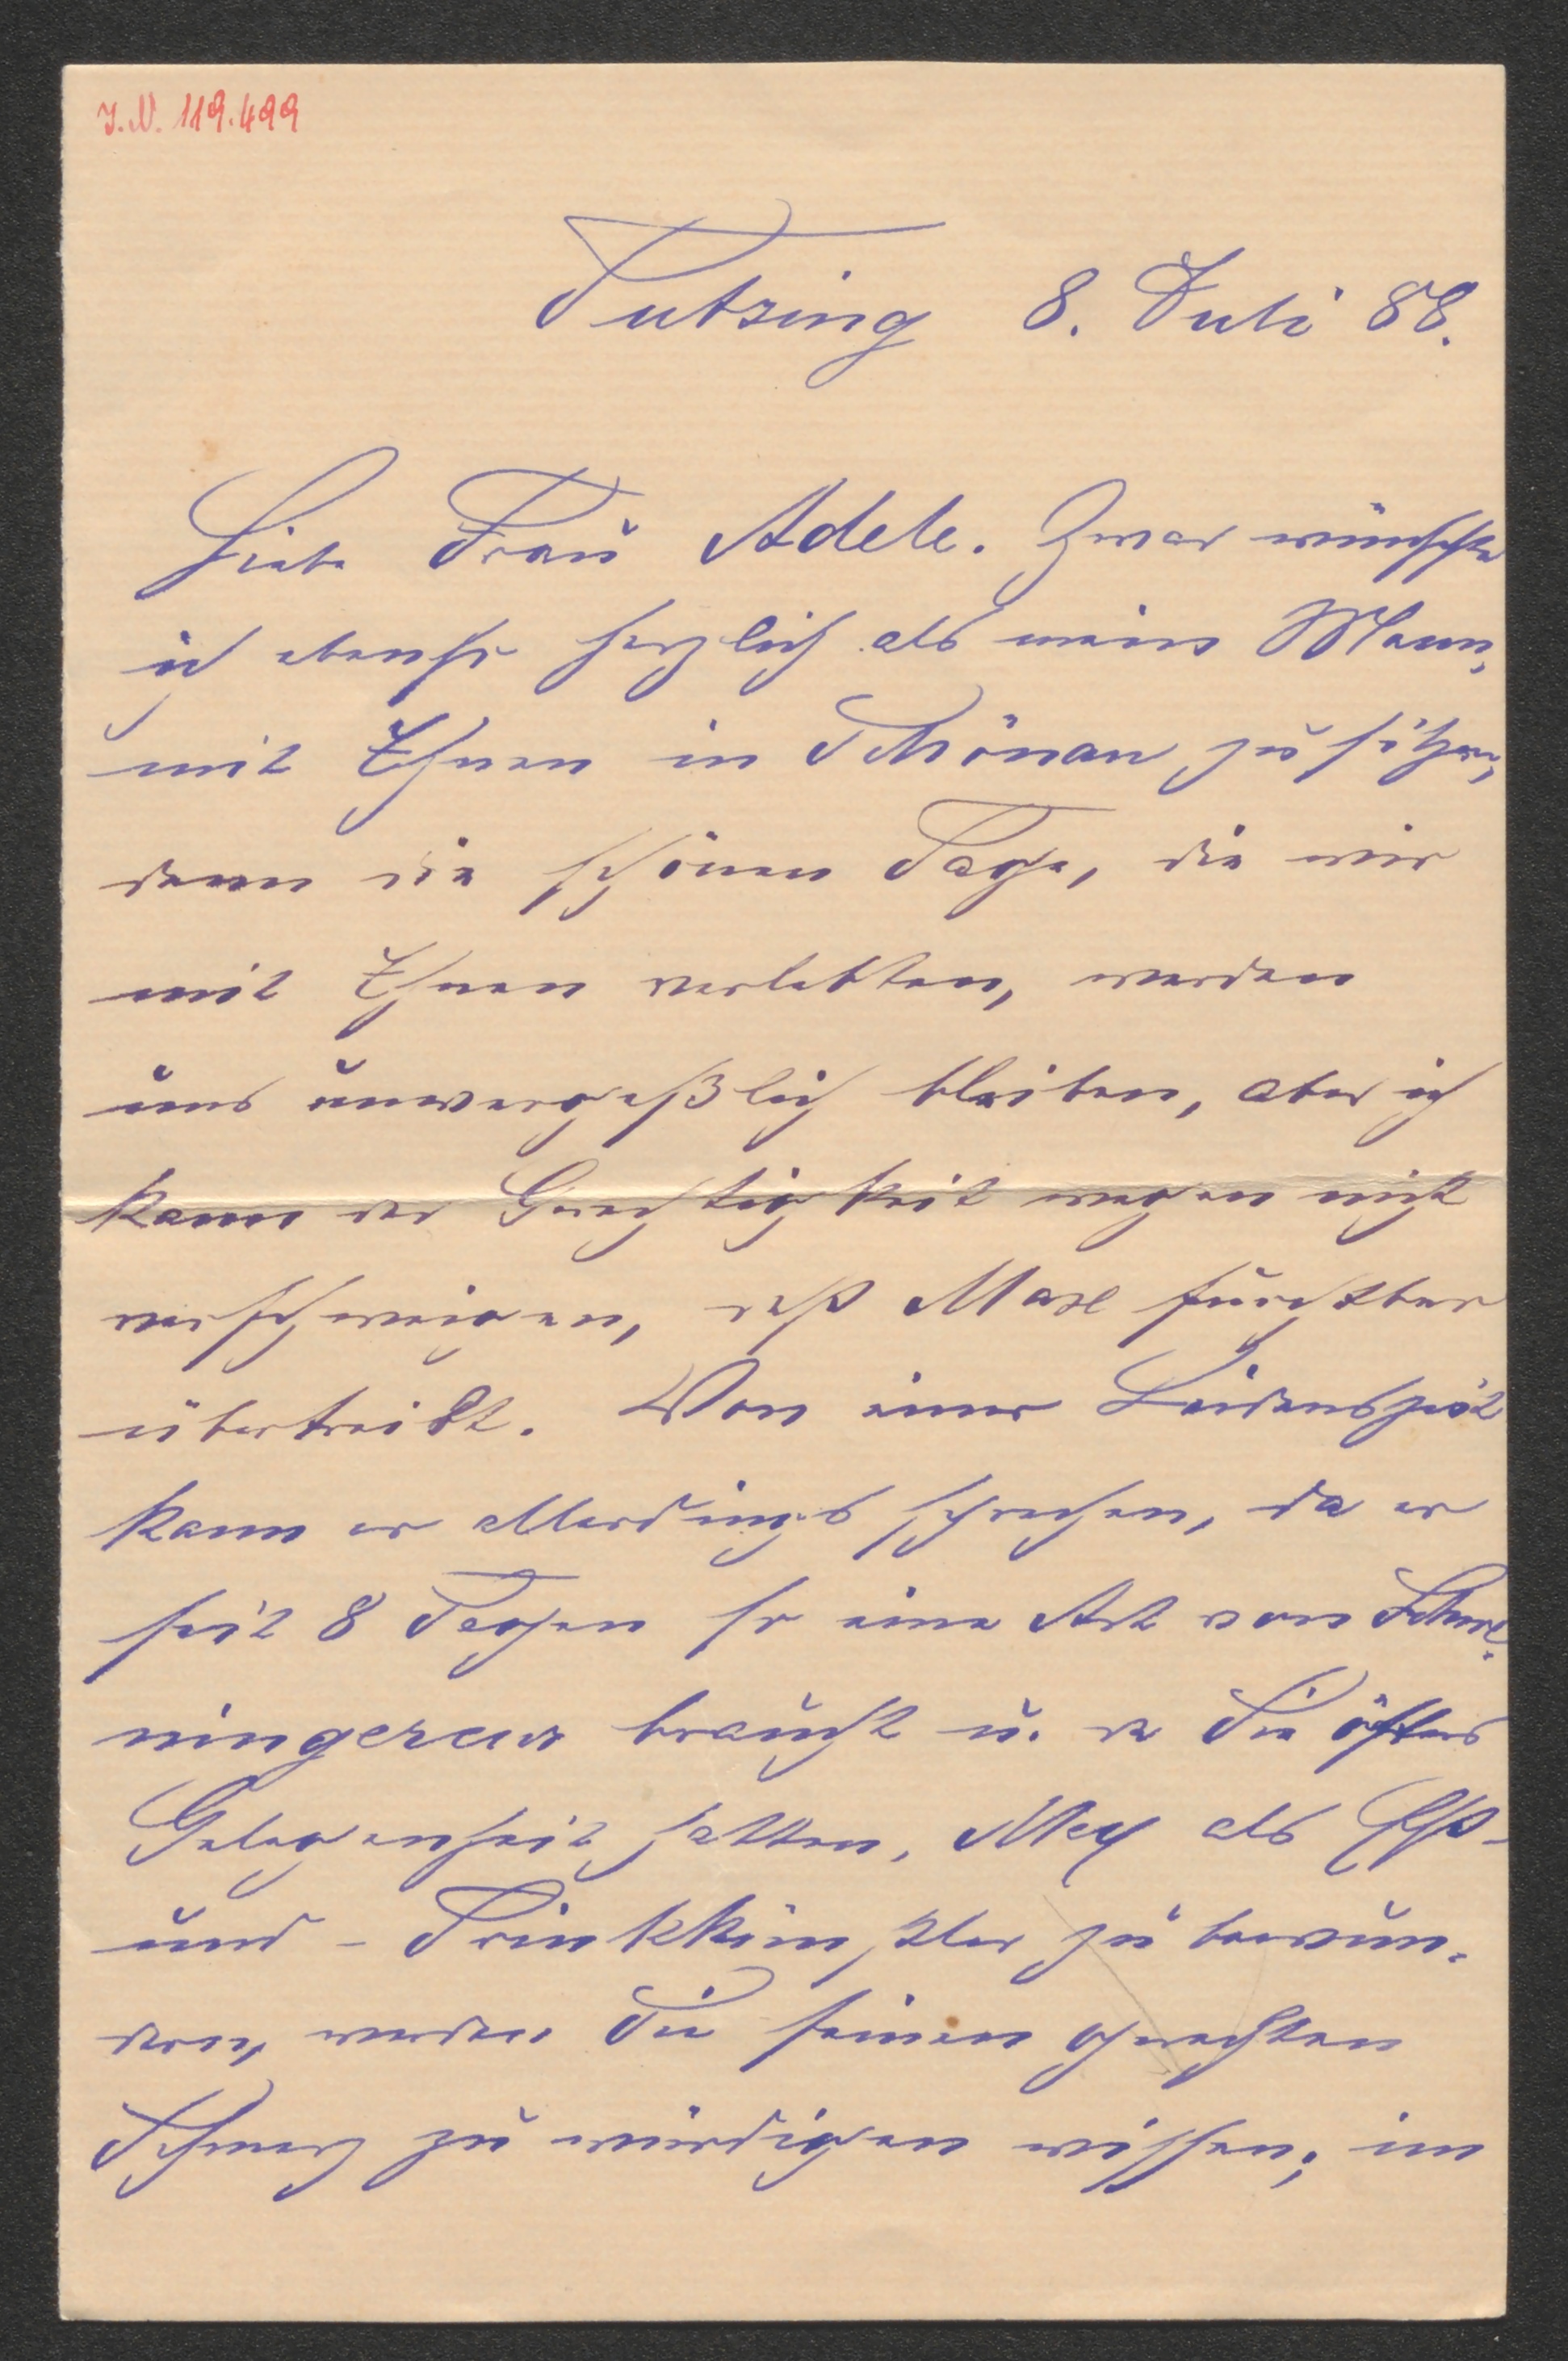 I.N. 119.499
Tutzing 8. Juli 88.
Liebe Frau Adele. Zwar wünschte
ich ebenso herzlich als mein Mann,
mit Ihnen in Schönau zu sitzen,
denn die schönen Tage, die wir
mit Ihnen verlebten, werden
uns unvergeßlich bleiben, aber ich
kann der Gerechtigkeit wegen nicht
verschweigen, daß Max furchtbar
übertreibt. Von einer Leidenszeit
kann er allerdings sprechen, da er
seit 8 Tagen so eine Art von Schwe-
ningercur braucht u. da Sie öfters
Gelegenheit hatten, Max als Eß-
und - Trinkkünstler zu bewun-
dern, werden Sie seinen gerechten
Schmerz zu würdigen wissen; im